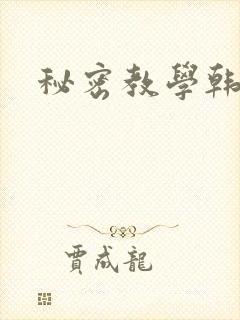 秘密教學韩
賈成龍